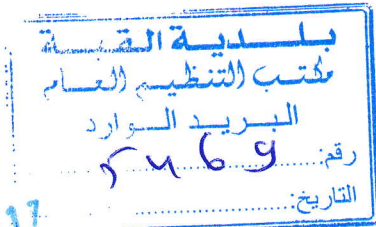 بلدية القبة
مكتب التنظيم العام
البريد الوارد
رقم:
التاريخ: